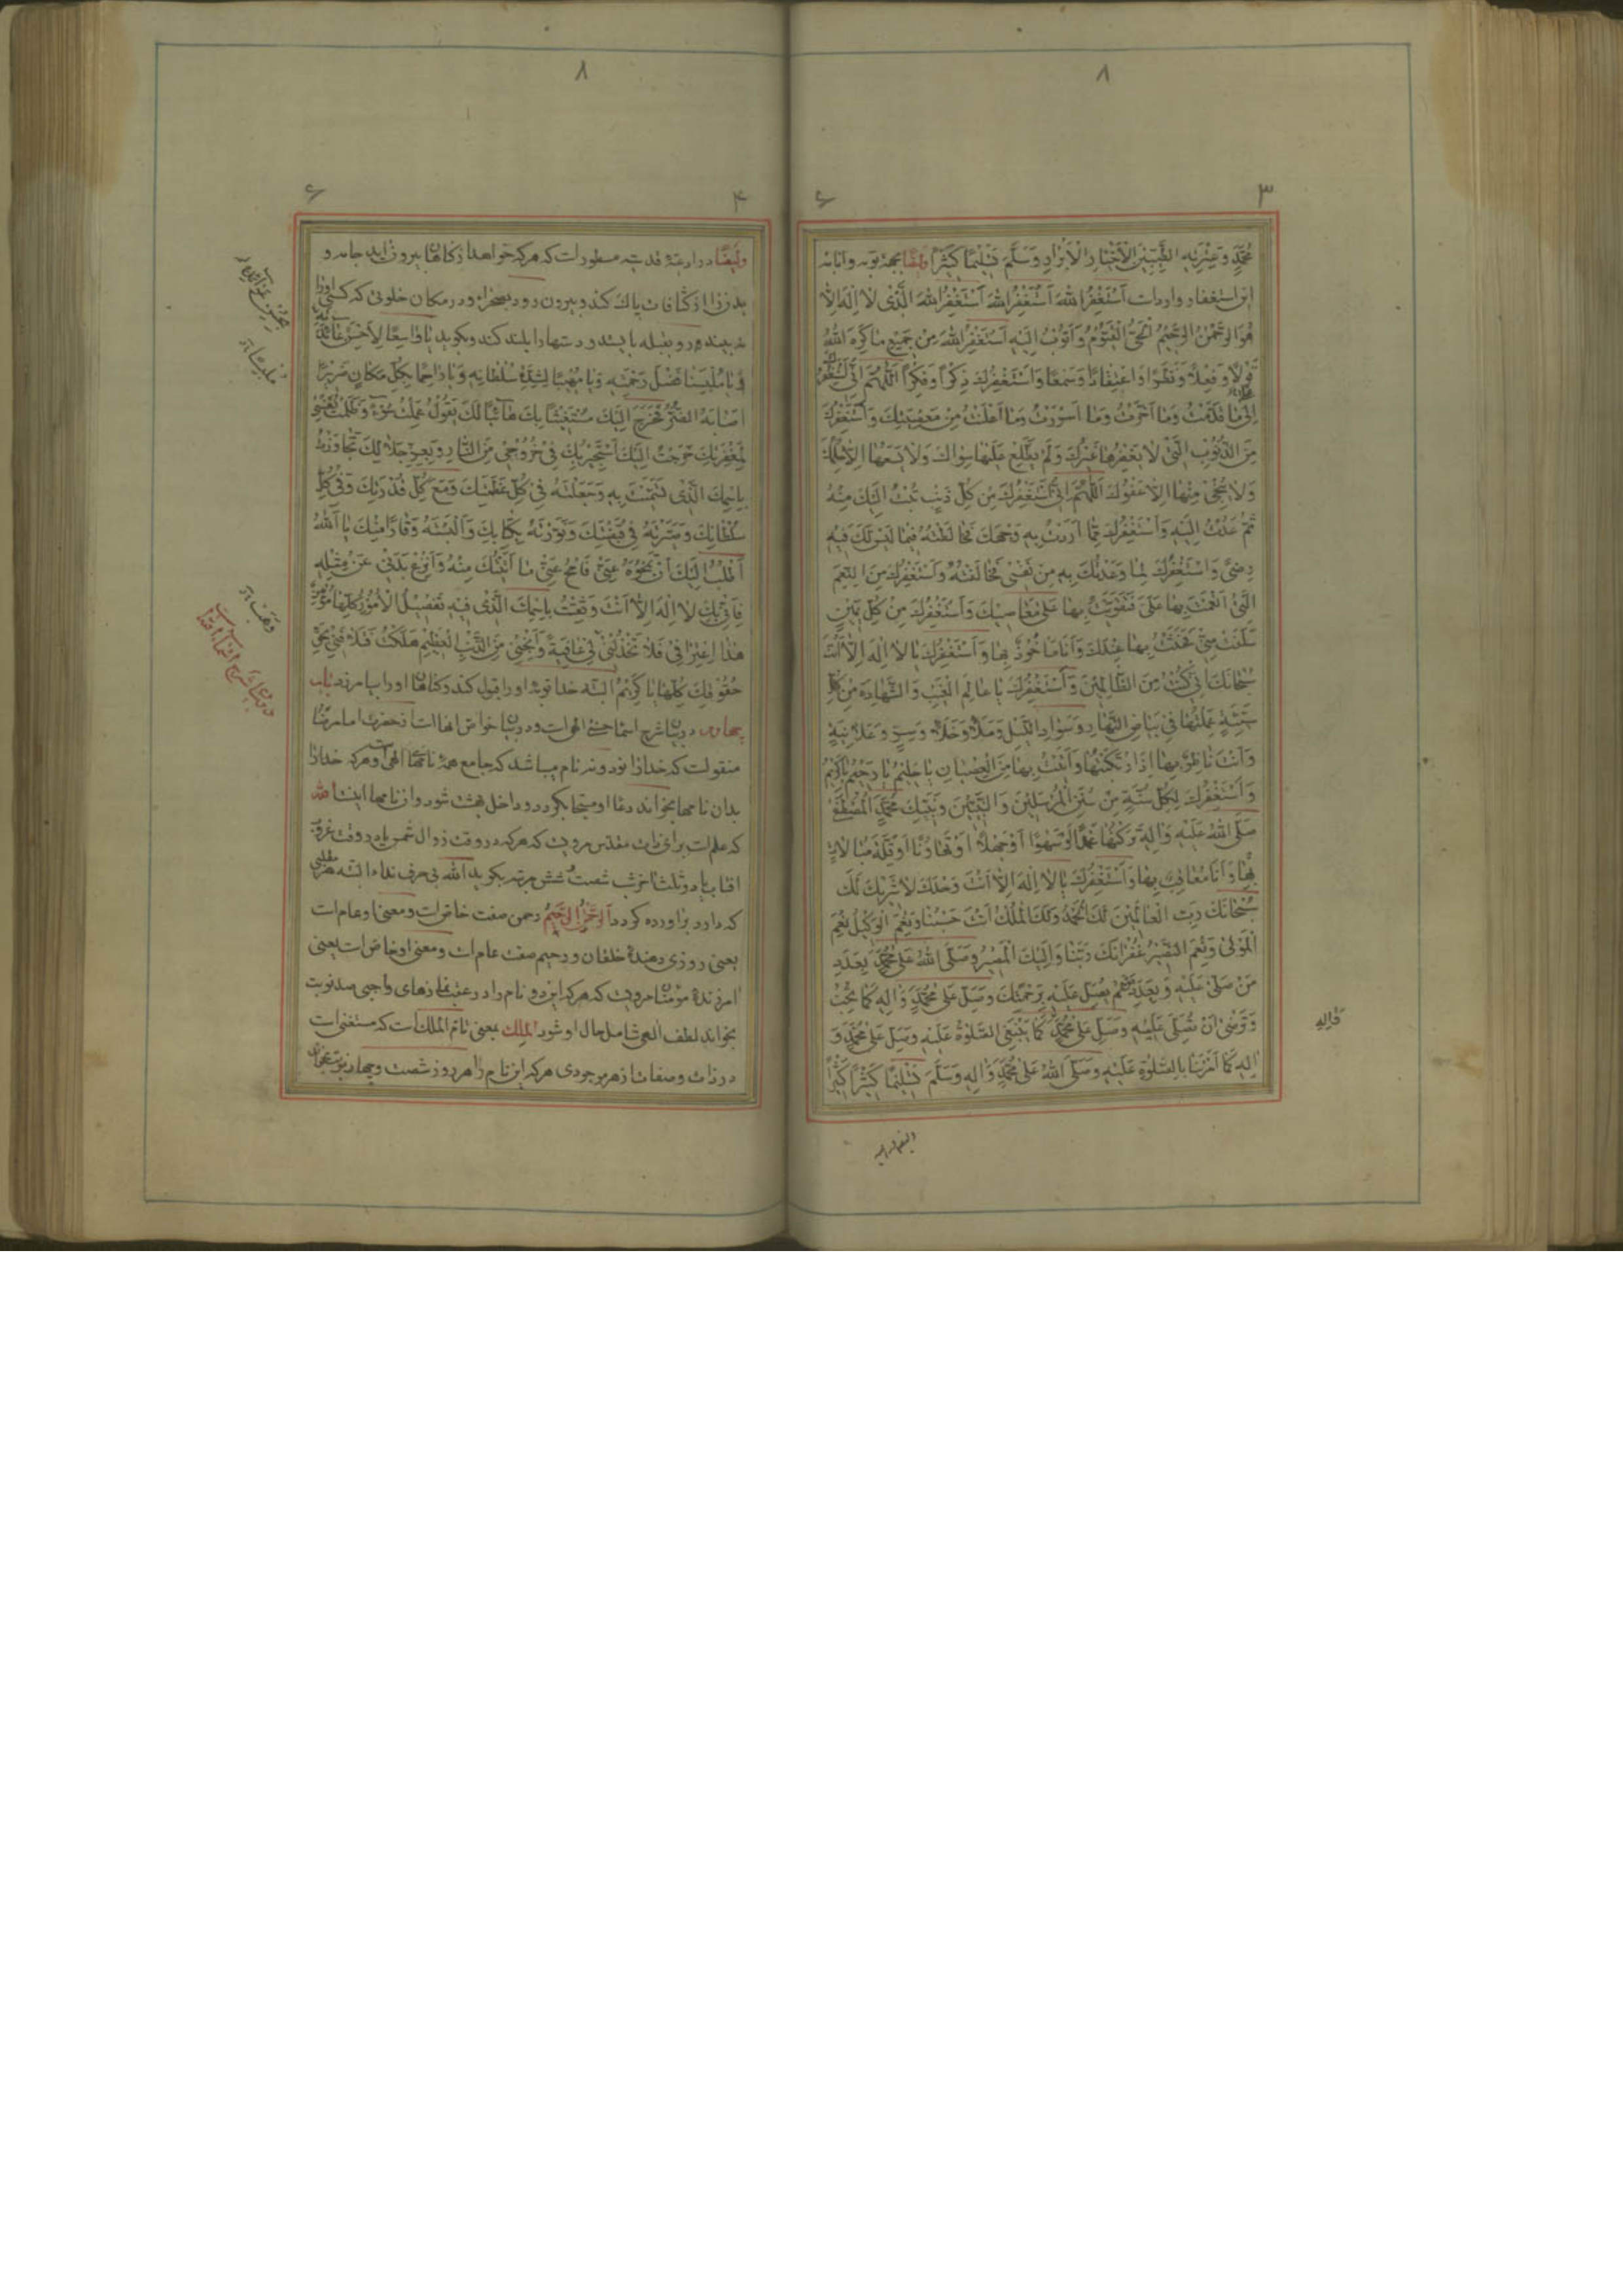 ۸
۳
۶
مُحَمَّدٍ وَعِتْرَتِهِ الطَّيِّبِينَ الْأَخْيَارِ الْأَبْرَارِ وَسَلَّمَ تَسْلِيمًا كَثِيرًا ايضًا بجهة توبه وانابه
اين استغفار وارداست أَسْتَغْفِرُ اللهَ أَسْتَغْفِرُ اللهَ أَسْتَغْفِرُ اللهَ الَّذِي لَا إِلَهَ إِلَّا
هُوَ الرَّحْمٰنُ الرَّحِيمُ الْحَيُّ الْقَيُّومُ وَأَتُوبُ إِلَيْهِ أَسْتَغْفِرُ اللهَ مِنْ جَمِيعِ مَا كَرِهَ اللهُ
قَوْلًا وَفِعْلًا وَنَظَرًا وَاعْتِقَادًا وَسَمْعًا وَأَسْتَغْفِرُكَ ذِكْرًا وَفِكْرًا اَللّٰهُمَّ إِنِّي أَسْتَغْفِرُكَ
مَا قَدَّمْتُ وَمَا أَخَّرْتُ وَمَا أَسْرَرْتُ وَمَا أَعْلَنْتُ مِنْ مَعْصِيَتِكَ وَأَسْتَغْفِرُكَ
مِنَ الذُّنُوبِ الَّتِي لَا يَغْفِرُهَا غَيْرُكَ وَلَمْ يَطَّلِعْ عَلَيْهَا سِوَاكَ وَلَا يَسَعُهَا إِلَّا حِلْمُكَ
وَلَا يُنْجِي مِنْهَا إِلَّا عَفْوُكَ اَللّٰهُمَّ إِنِّي أَسْتَغْفِرُكَ مِنْ كُلِّ ذَنْبٍ تُبْتُ إِلَيْكَ مِنْهُ
ثُمَّ عُدْتُ إِلَيْهِ وَأَسْتَغْفِرُكَ مِمَّا أَرَدْتُ بِهِ وَجْهَكَ فَخَالَطَهُ فِيمَا لَيْسَ لَكَ فِيهِ
رِضًى وَأَسْتَغْفِرُكَ لِمَا وَعَدْتُكَ بِهِ مِنْ نَفْسِي فَخَالَفْتُهُ وَأَسْتَغْفِرُكَ مِنَ النِّعَمِ
الَّتِي أَنْعَمْتَ بِهَا عَلَيَّ فَتَقَوَّيْتُ بِهَا عَلَى مَعَاصِيكَ وَأَسْتَغْفِرُكَ مِنْ كُلِّ يَمِينٍ
سَلَفَتْ مِنِّي فَحَنَثْتُ بِهَا عِنْدَكَ وَأَنَا مَأْخُوذٌ بِهَا وَأَسْتَغْفِرُكَ يَا لَا إِلَهَ إِلَّا أَنْتَ
سُبْحَانَكَ إِنِّي كُنْتُ مِنَ الظَّالِمِينَ وَأَسْتَغْفِرُكَ يَا عَالِمَ الْغَيْبِ وَالشَّهَادَةِ مِنْ كُلِّ
سَيِّئَةٍ عَمِلْتُهَا فِي بَيَاضِ النَّهَارِ وَسَوَادِ اللَّيْلِ وَمَلَاءٍ وَخَلَاءٍ وَسِرٍّ وَعَلَانِيَةٍ
وَأَنْتَ نَاظِرٌ بِهَا إِذَا ارْتَكَبْتُهَا وَأَتَيْتُ بِهَا مِنَ الْعِصْيَانِ يَا حَلِيمُ يَا رَحِيمُ يَا كَرِيمُ
وَأَسْتَغْفِرُكَ لِكُلِّ سُنَّةٍ مِنْ سُنَنِ الْمُرْسَلِينَ وَالنَّبِيِّينَ وَنَبِيِّكَ مُحَمَّدٍ الْمُصْطَفَى
صَلَّى اللهُ عَلَيْهِ وَآلِهِ تَرَكْتُهَا عَمْدًا أَوْ سَهْوًا أَوْ جَهْلًا أَوْ تَهَاوُنًا أَوْ قِلَّةَ مُبَالَاةٍ
بِهَا وَأَنَا مُعَاقَبٌ بِهَا وَأَسْتَغْفِرُكَ يَا لَا إِلَهَ إِلَّا أَنْتَ وَحْدَكَ لَا شَرِيكَ لَكَ
سُبْحَانَكَ رَبَّ الْعَالَمِينَ لَكَ الْحَمْدُ وَلَكَ الْمُلْكُ أَنْتَ حَسْبُنَا وَنِعْمَ الْوَكِيلُ نِعْمَ
الْمَوْلَى وَنِعْمَ النَّصِيرُ غُفْرَانَكَ رَبَّنَا وَإِلَيْكَ الْمَصِيرُ وَصَلَّى اللهُ عَلَى مُحَمَّدٍ بِعَدَدِ
مَنْ صَلَّى عَلَيْهِ وَبِعَدَدِ مَنْ لَمْ يُصَلِّ عَلَيْهِ بِرَحْمَتِكَ وَصَلِّ عَلَى مُحَمَّدٍ وَآلِهِ كَمَا تُحِبُّ
وَتَرْضَى أَنْ تُصَلِّيَ عَلَيْهِ وَصَلِّ عَلَى مُحَمَّدٍ كَمَا يَنْبَغِي الصَّلٰوةُ عَلَيْهِ وَصَلِّ عَلَى مُحَمَّدٍ وَ
آلِهِ كَمَا أَمَرْتَنَا بِالصَّلٰوةِ عَلَيْهِ وَصَلَّى اللهُ عَلَى مُحَمَّدٍ وَآلِهِ وَسَلَّمَ تَسْلِيمًا كَثِيرًا كَثِيرًا
وَآلِهِ
۸
۴
۶
وايضًا در ادعيهٔ قدسيه مسطور است كه هركه خواهد از گناهان بيرون آيد جامه و
بدن را از كثافات پاك كند و بيرون رود بصحرا و در مكان خلوتى كه كسى او را
نه بيند و رو بقبله بايستد و دستها را بلند كند و بگويد يَا وَاسِعًا
فَضْلَ رَحْمَتِهِ وَيَا مُهِيبًا لِشِدَّةِ سُلْطَانِهِ وَيَا رَاحِمًا بِكُلِّ مَكَانٍ ضَرِيرًا
أَصَابَهُ الضُّرُّ فَخَرَجَ إِلَيْكَ مُسْتَغِيثًا بِكَ هَائِبًا لَكَ يَقُولُ عَمِلْتُ سُوءً وَظَلَمْتُ نَفْسِي
لِمَغْفِرَتِكَ خَرَجْتُ إِلَيْكَ أَسْتَجِيرُ بِكَ فِي خُرُوجِي مِنَ النَّارِ وَبِعِزِّ جَلَالِكَ تَجَاوَزْتُ
بِاسْمِكَ الَّذِي تَسَمَّيْتَ بِهِ وَجَعَلْتَهُ فِي كُلِّ عَظَمَتِكَ وَمَعَ كُلِّ قُدْرَتِكَ وَفِي كُلِّ
سُلْطَانِكَ وَصَيَّرْتَهُ فِي قَبْضَتِكَ وَنَوَّرْتَهُ بِكِتَابِكَ وَأَلْبَسْتَهُ وَقَارًا مِنْكَ يَا اَللهُ
أَطْلُبُ إِلَيْكَ أَنْ تَمْحُوَهُ عَنِّي فَامْحُ عَنِّي مَا أَتَيْتُكَ مِنْهُ وَانْزِعْ بَدَنِي عَنْ مِثْلِهِ
فَإِنِّي بِكَ لَا إِلَهَ إِلَّا أَنْتَ وَثِقْتُ بِاسْمِكَ الَّذِي فِيهِ تَفْصِيلُ الْأُمُورِ كُلِّهَا مُؤْمِنٌ
هَذَا اعْتِرَافِي فَلَا تَخْذُلْنِي عَافِيَةً وَأَنْجِنِي مِنَ الذَّنْبِ الْعَظِيمِ هَلَكْتُ فَلَافَنِي بِحَقِّ
حُقُوقِكَ كُلِّهَا يَا كَرِيمُ البته خدا توبهٔ او را قبول كند و گناهان او را بيامرزد باب
چهارم در بيان شرح اسماء حسنى الهى است و در بيان خواص انها است از حضرت امام رضا
منقولست كه خدا را نود و نه نام ميباشد كه جامع همهٔ نامهاى الهى است و هركه خدا را
بدان نامها بخواند دعاء او مستجاب گردد و داخل بهشت شود و از نامها اينست الله
كه علم است براى ذات مقدس مرويست كه هركه در وقت زوال شمس يا در وقت غروب
افتاب يا در ثلث آخر شب شصت و شش مرتبه بگويد الله بى حرف نداء البته هر مطلبى
كه دارد براورده گردد اَلرَّحْمٰنُ الرَّحِيمُ رحمن صفت خاص است و معنى او عام است
يعنى روزى دهندهٔ خلقان و رحيم صفت عام است و معنى او خاص است يعنى
امرزندهٔ مؤمنان مرويست كه هركه اين دو نام را در عقب نمازهاى واجبى صد نوبت
بخواند لطف الهى شامل حال او شود الملك بمعنى تام الملك است كه مستغنى است
در ذات و صفات از هر موجودى هركه اين نام را هر روز شصت و چهار نوبت بخواند
در بيان شرح اسماء